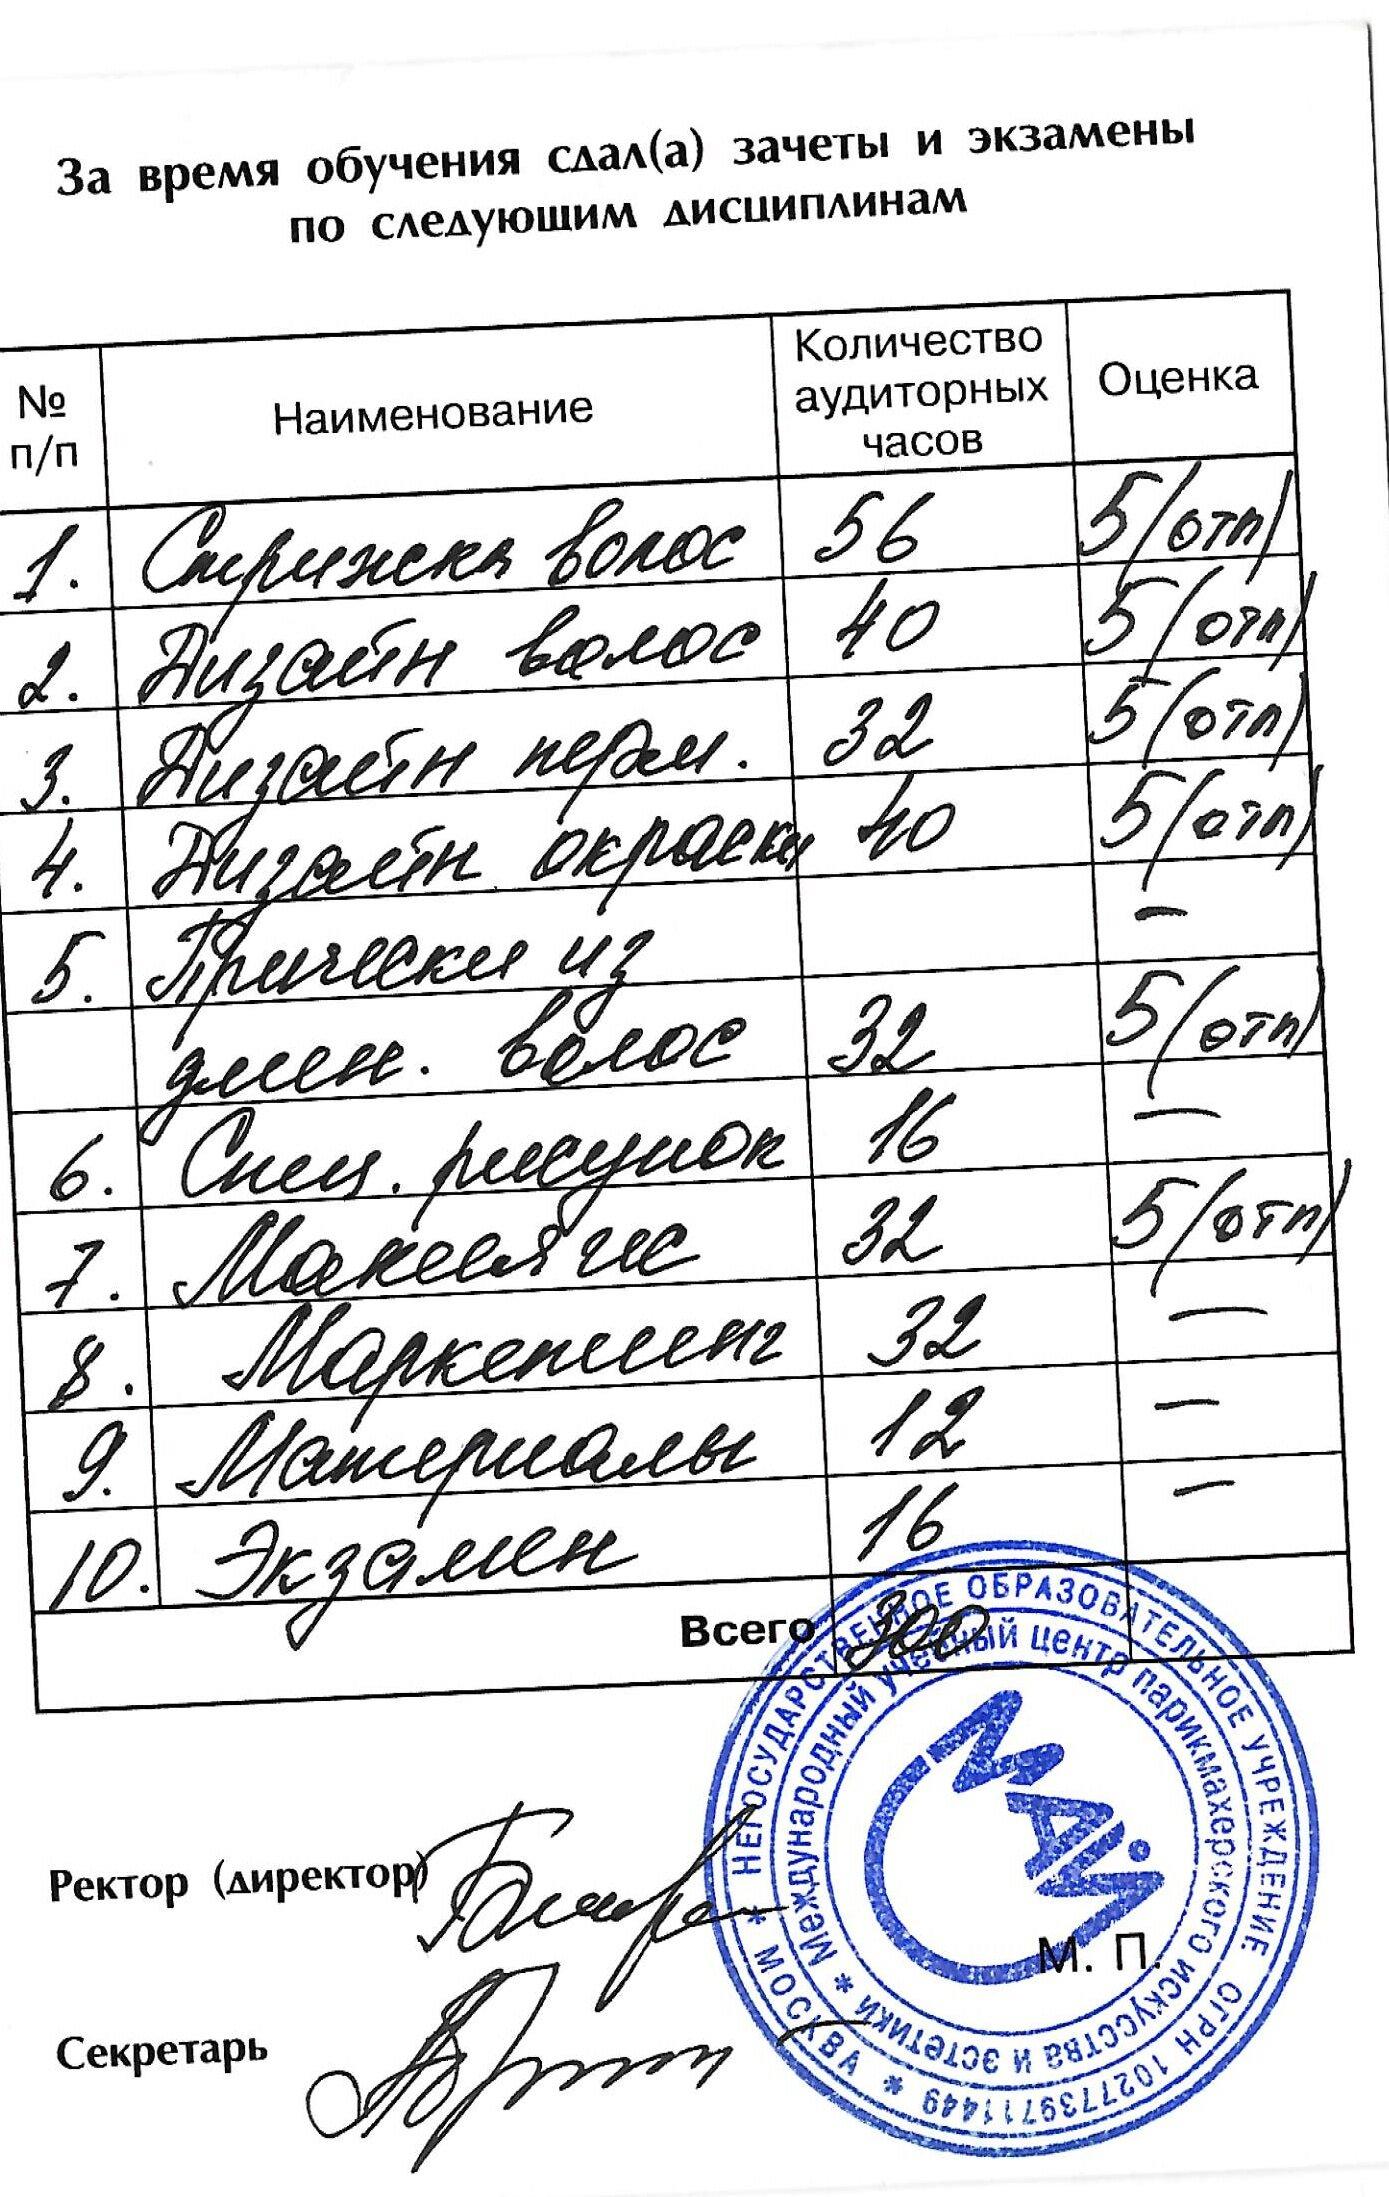 За время обучения сдал(а) зачеты и экзамены
по следующим дисциплинам
№ п/п Наименование Количество аудиторных часов Оценка
1. Стрижка волос 56 5 (отл)
2. Дизайн волос 40 5 (отл)
3. Дизайн перм. 32 5 (отл)
4. Дизайн окраски 40 5 (отл)
5. Прически из —
длин. волос 32 5 (отл)
6. Спец. рисунок 16 —
7. Макияж 32 5 (отл)
8. Маркетинг 32 —
9. Материалы 12 —
10. Экзамен 16 —
Всего 300
Ректор (директор)
М. П.
Секретарь
НЕГОСУДАРСТВЕННОЕ ОБРАЗОВАТЕЛЬНОЕ УЧРЕЖДЕНИЕ ОГРН 1027739711449 * МОСКВА *
Международный учебный центр парикмахерского искусства и эстетики *
МАЙ